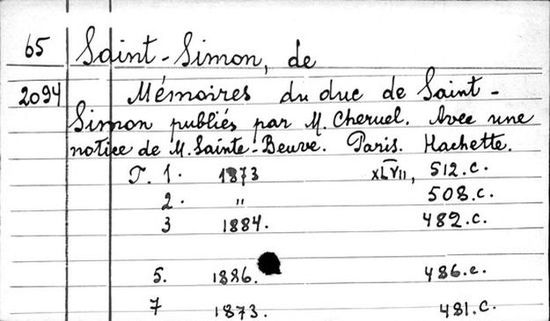 65 Saint-Simon, de
2094 Mémoires du duc de Saint-
Simon publiés par M. Cheruel. Avec une
notice de M. Sainte-Beuve. Paris. Hachette.
T. 1. 1873 XLVII, 512.c.
2. " 508.c.
3 1884. 482.c.
5. 1886. 486.c.
7 1873. 481.c.